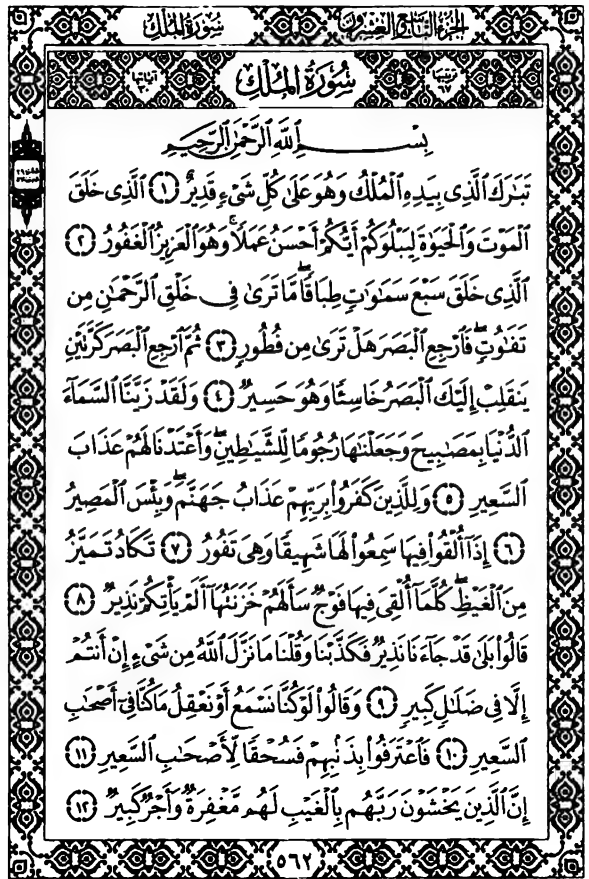 الجزء التاسع والعشرون سورة الملك
ترتيبها ٦٧ سُورَةُ المُلْكِ آياتها ٣٠
بِسْمِ اللَّهِ الرَّحْمَٰنِ الرَّحِيمِ
تَبَٰرَكَ الَّذِى بِيَدِهِ الْمُلْكُ وَهُوَ عَلَىٰ كُلِّ شَىْءٍ قَدِيرٌ ﴿١﴾ الَّذِى خَلَقَ
الْمَوْتَ وَالْحَيَوٰةَ لِيَبْلُوَكُمْ أَيُّكُمْ أَحْسَنُ عَمَلًا ۚ وَهُوَ الْعَزِيزُ الْغَفُورُ ﴿٢﴾
الَّذِى خَلَقَ سَبْعَ سَمَٰوَٰتٍ طِبَاقًا ۖ مَّا تَرَىٰ فِى خَلْقِ الرَّحْمَٰنِ مِن
تَفَٰوُتٍ ۖ فَارْجِعِ الْبَصَرَ هَلْ تَرَىٰ مِن فُطُورٍ ﴿٣﴾ ثُمَّ ارْجِعِ الْبَصَرَ كَرَّتَيْنِ
يَنقَلِبْ إِلَيْكَ الْبَصَرُ خَاسِئًا وَهُوَ حَسِيرٌ ﴿٤﴾ وَلَقَدْ زَيَّنَّا السَّمَآءَ
الدُّنْيَا بِمَصَٰبِيحَ وَجَعَلْنَٰهَا رُجُومًا لِّلشَّيَٰطِينِ ۖ وَأَعْتَدْنَا لَهُمْ عَذَابَ
السَّعِيرِ ﴿٥﴾ وَلِلَّذِينَ كَفَرُوا۟ بِرَبِّهِمْ عَذَابُ جَهَنَّمَ ۖ وَبِئْسَ الْمَصِيرُ
﴿٦﴾ إِذَآ أُلْقُوا۟ فِيهَا سَمِعُوا۟ لَهَا شَهِيقًا وَهِىَ تَفُورُ ﴿٧﴾ تَكَادُ تَمَيَّزُ
مِنَ الْغَيْظِ ۖ كُلَّمَآ أُلْقِىَ فِيهَا فَوْجٌ سَأَلَهُمْ خَزَنَتُهَآ أَلَمْ يَأْتِكُمْ نَذِيرٌ ﴿٨﴾
قَالُوا۟ بَلَىٰ قَدْ جَآءَنَا نَذِيرٌ فَكَذَّبْنَا وَقُلْنَا مَا نَزَّلَ اللَّهُ مِن شَىْءٍ إِنْ أَنتُمْ
إِلَّا فِى ضَلَٰلٍ كَبِيرٍ ﴿٩﴾ وَقَالُوا۟ لَوْ كُنَّا نَسْمَعُ أَوْ نَعْقِلُ مَا كُنَّا فِىٓ أَصْحَٰبِ
السَّعِيرِ ﴿١٠﴾ فَاعْتَرَفُوا۟ بِذَنۢبِهِمْ فَسُحْقًا لِّأَصْحَٰبِ السَّعِيرِ ﴿١١﴾
إِنَّ الَّذِينَ يَخْشَوْنَ رَبَّهُم بِالْغَيْبِ لَهُم مَّغْفِرَةٌ وَأَجْرٌ كَبِيرٌ ﴿١٢﴾
٥٦٢